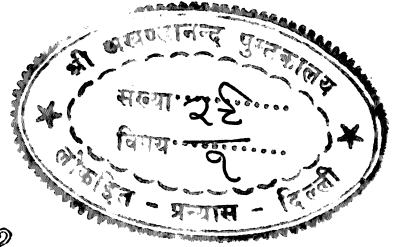 श्री अखण्डानन्द पुस्तकालय
संख्या २९
विषय १
लोकहित - प्रन्यास - दिल्ली